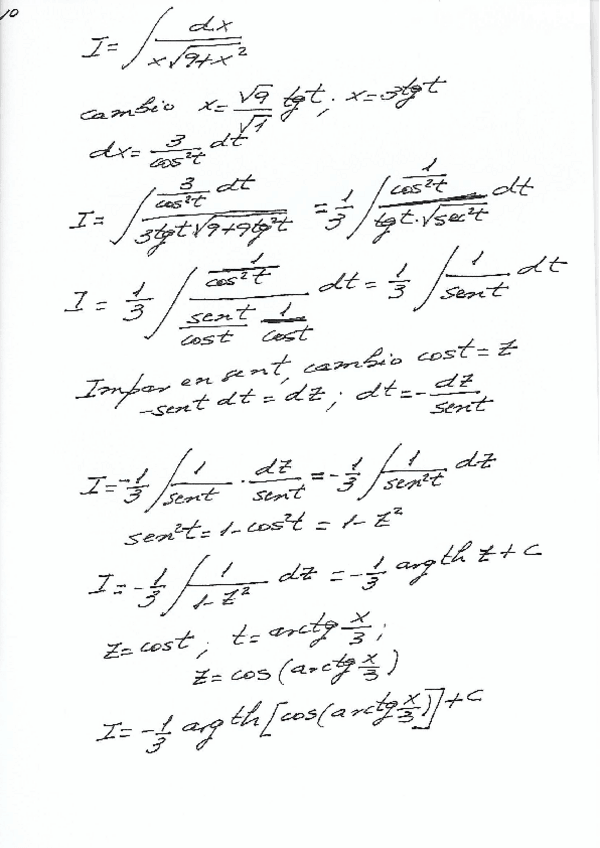 10
I = ∫ dx / (x√(9+x²))
cambio x = (√9/√1) tgt; x = 3tgt
dx = (3/cos²t) dt
I = ∫ ((3/cos²t) dt) / (3tgt √(9+9tg²t)) = 1/3 ∫ (1/cos²t) / (tgt·√(sec²t)) dt
I = 1/3 ∫ (1/cos²t) / ((sent/cost) (1/cost)) dt = 1/3 ∫ 1/sent dt
Impar en sent, cambio cost = z
-sent dt = dz; dt = - dz/sent
I = -1/3 ∫ 1/sent · dz/sent = -1/3 ∫ 1/sen²t dz
sen²t = 1-cos²t = 1-z²
I = -1/3 ∫ 1/(1-z²) dz = -1/3 arg th z + C
z = cost; t = arctg x/3;
z = cos(arctg x/3)
I = -1/3 arg th [cos(arctg x/3)] + C